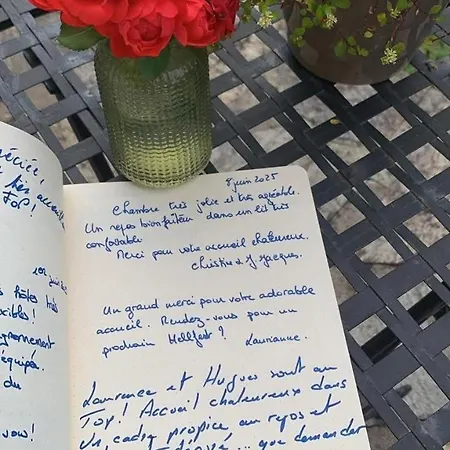 récié,
très
TOP!
102 juin
hôtes très
ibles!
gnonnement
équipé.
du
8 juin 2025
Chambre très jolie et très agréable.
Un repos bienfaiteur dans un lit très
confortable
Merci pour votre accueil chaleureux.
Christine & J. Jacques.
Un grand merci pour votre adorable
accueil. Rendez-vous pour un
prochain Hellfest ? Laurianne.
Laurence et Hugues sont au
Top! Accueil chaleureux dans
un cadre propice au repos et
... que demander